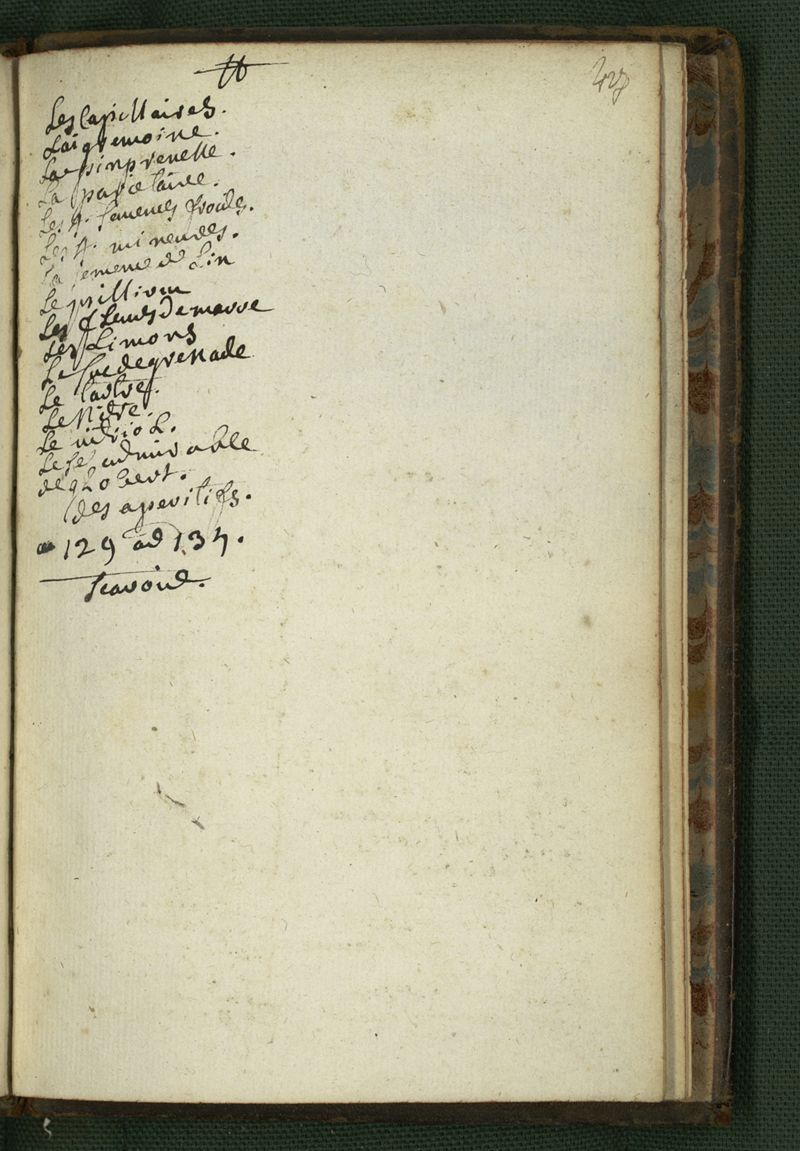 #
428
Les Capillaires.
Laigremoine.
La pinprenelle.
La parietaire.
Les 4. semences froides.
Les 4. mineures.
La semence de Lin
Le psillium
Les fleurs de mauve
Les Limons
Le suc de grenade
Le tartre.
Le Nitre.
Le vitriol.
Le sel admirable
de globert.
des aperitifs.
129 ad 134.
scavoir.